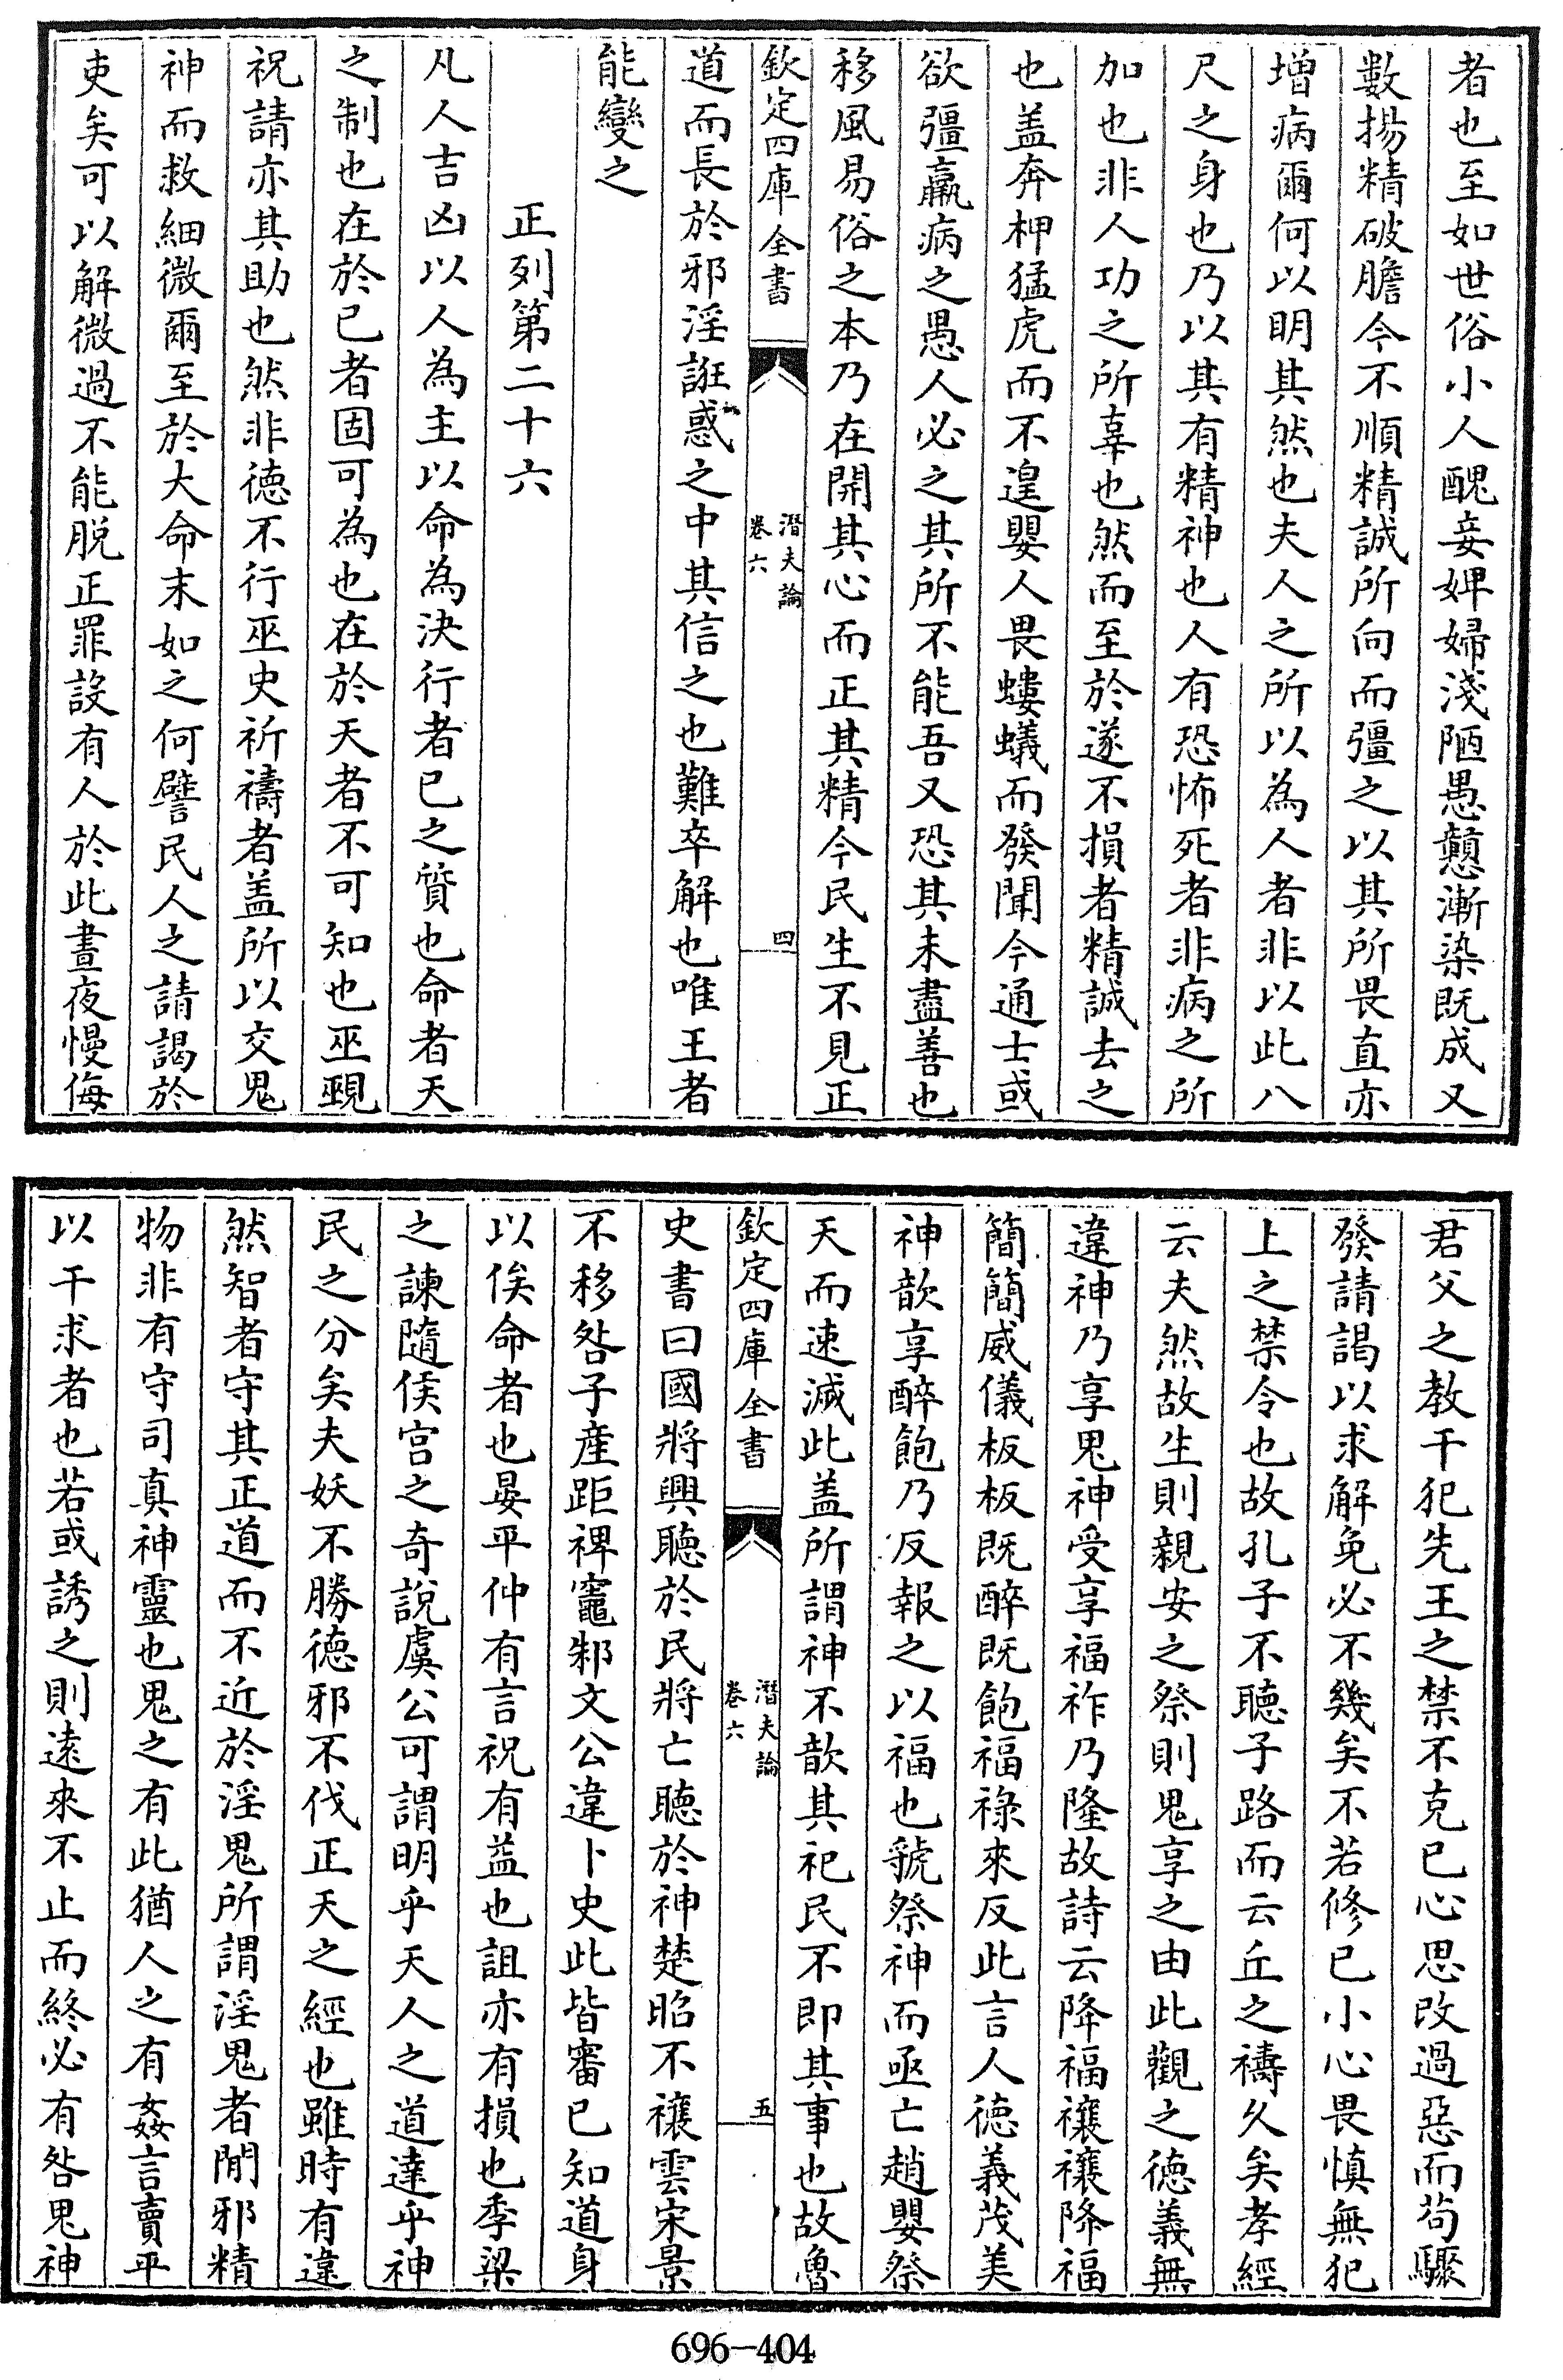 者也至如世俗小人醜妾婢婦淺陋愚戇漸染既成又
數揚精破膽今不順精誠所向而彊之以其所畏直亦
增病爾何以明其然也夫人之所以為人者非以此八
尺之身也乃以其有精神也人有恐怖死者非病之所
加也非人功之所辜也然而至於遂不損者精誠去之
也盖奔柙猛虎而不遑嬰人畏螻蟻而發聞今通士或
欲彊羸病之愚人必之其所不能吾又恐其未盡善也
移風易俗之本乃在開其心而正其精今民生不見正
欽定四庫全書
潛夫論
卷六
四
道而長於邪淫誑惑之中其信之也難卒解也唯王者
能變之
正列第二十六
凡人吉凶以人為主以命為決行者已之質也命者天
之制也在於已者固可為也在於天者不可知也巫覡
祝請亦其助也然非德不行巫史祈禱者盖所以交鬼
神而救細微爾至於大命末如之何譬民人之請謁於
吏矣可以解微過不能脱正罪設有人於此晝夜慢侮
君父之教干犯先王之禁不克已心思改過惡而苟驟
發請謁以求解免必不幾矣不若修已小心畏慎無犯
上之禁令也故孔子不聽子路而云丘之禱久矣孝經
云夫然故生則親安之祭則鬼享之由此觀之德義無
違神乃享鬼神受享福祚乃隆故詩云降福禳禳降福
簡簡威儀板板既醉既飽福祿來反此言人德義茂美
神歆享醉飽乃反報之以福也虢祭神而亟亡趙嬰祭
天而速滅此盖所謂神不歆其祀民不即其事也故魯
欽定四庫全書
潛夫論
卷六
五
史書曰國將興聽於民將亡聽於神楚昭不禳雲宋景
不移咎子產距禆竈邾文公違卜史此皆審已知道身
以俟命者也晏平仲有言祝有益也詛亦有損也季梁
之諫隨侯宮之奇說虞公可謂明乎天人之道達乎神
民之分矣夫妖不勝德邪不伐正天之經也雖時有違
然智者守其正道而不近於淫鬼所謂淫鬼者閒邪精
物非有守司真神靈也鬼之有此猶人之有姦言賣平
以干求者也若或誘之則遠來不止而終必有咎鬼神
696-404